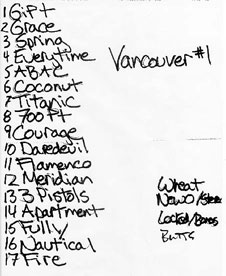 1 Gift
2 Grace
3 Spring
4 Everytime
5 ABAC
6 Coconut
7 Titanic
8 700 Ft
9 Courage
10 Daredevil
11 Flamenco
12 Meridian
13 3 Pistols
14 Apartment
15 Fully
16 Nautical
17 Fire
Vancouver #1
Wheat
Butts